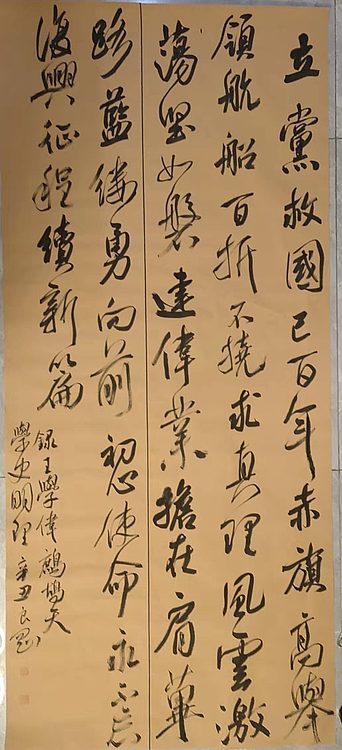 立黨救國已百年赤旗高舉
領航船百折不撓求真理風雲激
蕩堅如磐建偉業擔在肩蓽
路藍縷勇向前初心使命永不忘
復興征程續新篇
錄王學偉鷓鴣天
學史明理辛丑良